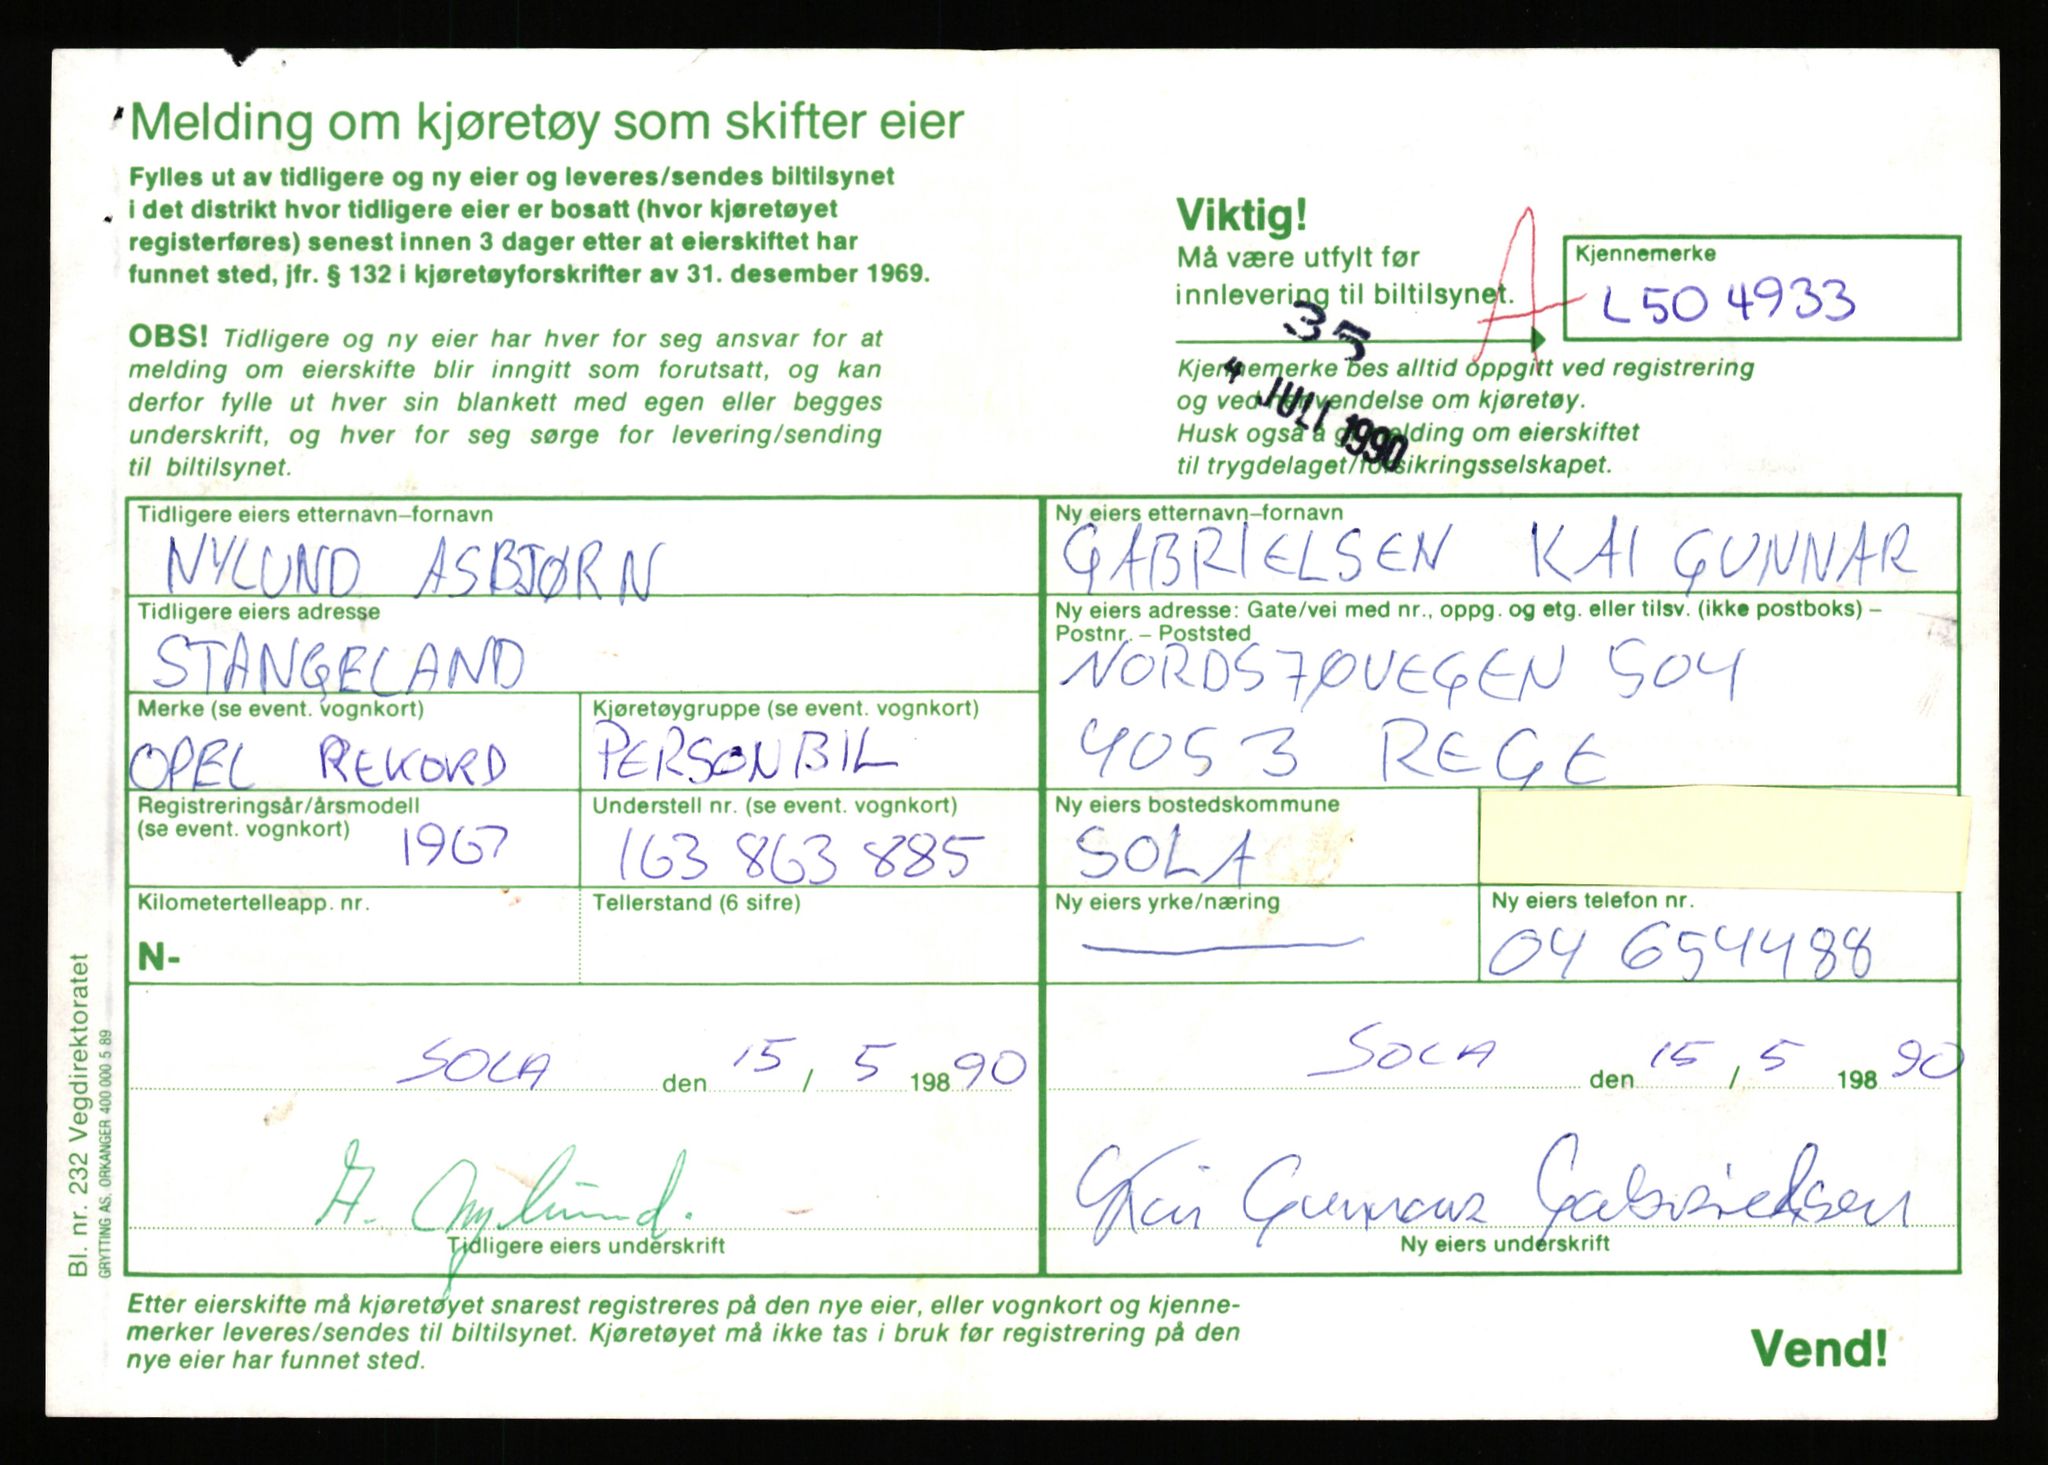 Melding om kjøretøy som skifter eier
Fylles ut av tidligere og ny eier og leveres/sendes biltilsynet
i det distrikt hvor tidligere eier er bosatt (hvor kjøretøyet
registerføres) senest innen 3 dager etter at eierskiftet har
funnet sted, jfr. § 132 i kjøretøyforskrifter av 31. desember 1969.
OBS! Tidligere og ny eier har hver for seg ansvar for at
melding om eierskifte blir inngitt som forutsatt, og kan
derfor fylle ut hver sin blankett med egen eller begges
underskrift, og hver for seg sørge for levering/sending
til biltilsynet.
Viktig!
Må være utfylt før
innlevering til biltilsynet.
A
Kjennemerke
L50 4933
35
4 JULI 1990
Kjennemerke bes alltid oppgitt ved registrering
og ved henvendelse om kjøretøy.
Husk også å gi melding om eierskiftet
til trygdelaget/forsikringsselskapet.
Tidligere eiers etternavn–fornavn
NYLUND ASBJØRN
Tidligere eiers adresse
STANGELAND
Merke (se event. vognkort)
OPEL REKORD
Kjøretøygruppe (se event. vognkort)
PERSONBIL
Registreringsår/årsmodell
(se event. vognkort)
1967
Understell nr. (se event. vognkort)
163 863 885
Kilometertelleapp. nr.
N-
Tellerstand (6 sifre)
SOLA den 15 / 5 198 90
A. Nylund.
Tidligere eiers underskrift
Ny eiers etternavn–fornavn
GABRIELSEN KAI GUNNAR
Ny eiers adresse: Gate/vei med nr., oppg. og etg. eller tilsv. (ikke postboks) –
Postnr. – Poststed
NORDSTØVEGEN 504
4053 REGE
Ny eiers bostedskommune
SOLA
Ny eiers yrke/næring
Ny eiers telefon nr.
04 654488
SOLA den 15 / 5 198 90
Kai Gunnar Gabrielsen
Ny eiers underskrift
Etter eierskifte må kjøretøyet snarest registreres på den nye eier, eller vognkort og kjenne-
merker leveres/sendes til biltilsynet. Kjøretøyet må ikke tas i bruk før registrering på den
nye eier har funnet sted.
Vend!
Bl. nr. 232 Vegdirektoratet
GRYTTING AS. ORKANGER 400 000 5 89